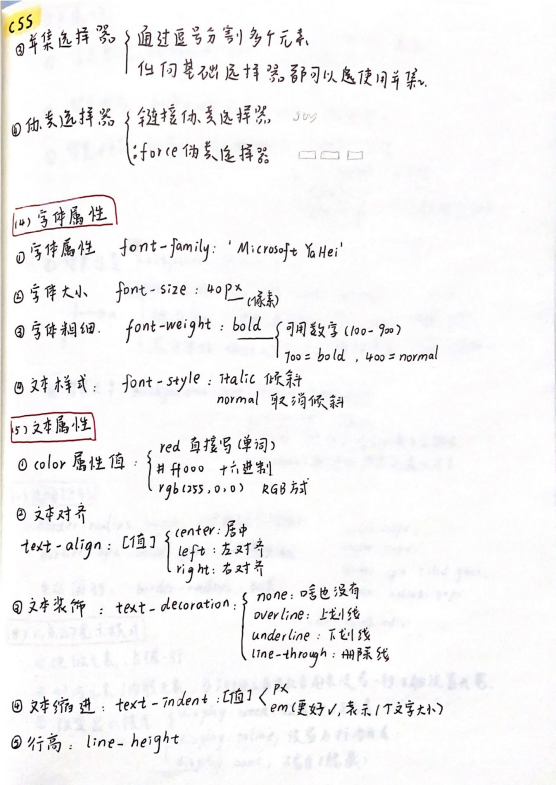 CSS
③并集选择器 { 通过逗号分割多个元素
任何基础选择器都可以使用并集
④伪类选择器 { 链接伪类选择器
:force伪类选择器
(4)字体属性
①字体属性 font-family: 'Microsoft YaHei'
②字体大小 font-size: 40px (像素)
③字体粗细. font-weight: bold { 可用数字(100-900)
700=bold, 400=normal
④文本样式: font-style: italic 倾斜
normal 取消倾斜
(5)文本属性
①color属性值: { red 直接写(单词)
#ff000 十六进制
rgb(255,0,0) RGB方式
②文本对齐
text-align: [值] { center: 居中
left: 左对齐
right: 右对齐
③文本装饰: text-decoration: { none: 啥也没有
overline: 上划线
underline: 下划线
line-through: 删除线
④文本缩进: text-indent: [值] < px
em(更好√, 表示1个文字大小)
⑤行高: line-height